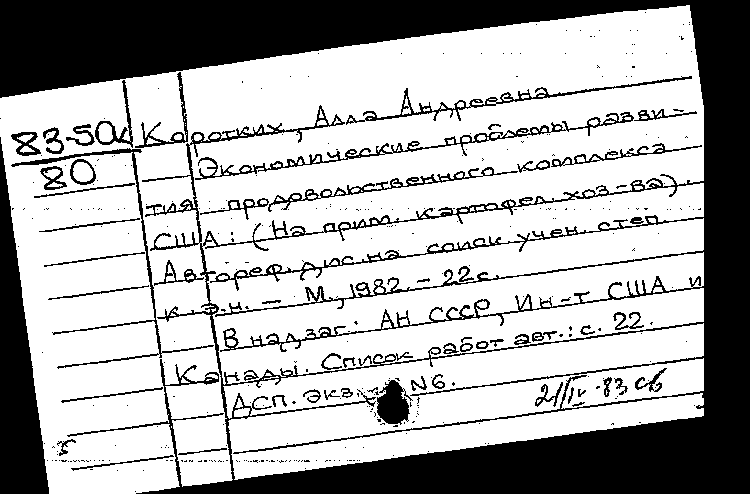 83-50к
80
Коротких, Алла Андреевна
Экономические проблемы разви-
тия продовольственного комплекса
США: (На прим. картофел. хоз-ва).
Автореф. дис. на соиск учен. степ.
к.э.н. – М., 1982. – 22с.
В надзаг: АН СССР, Ин-т США и
Канады. Список работ авт.: с. 22.
ДСП. экз. N6.
21/IV-83 св